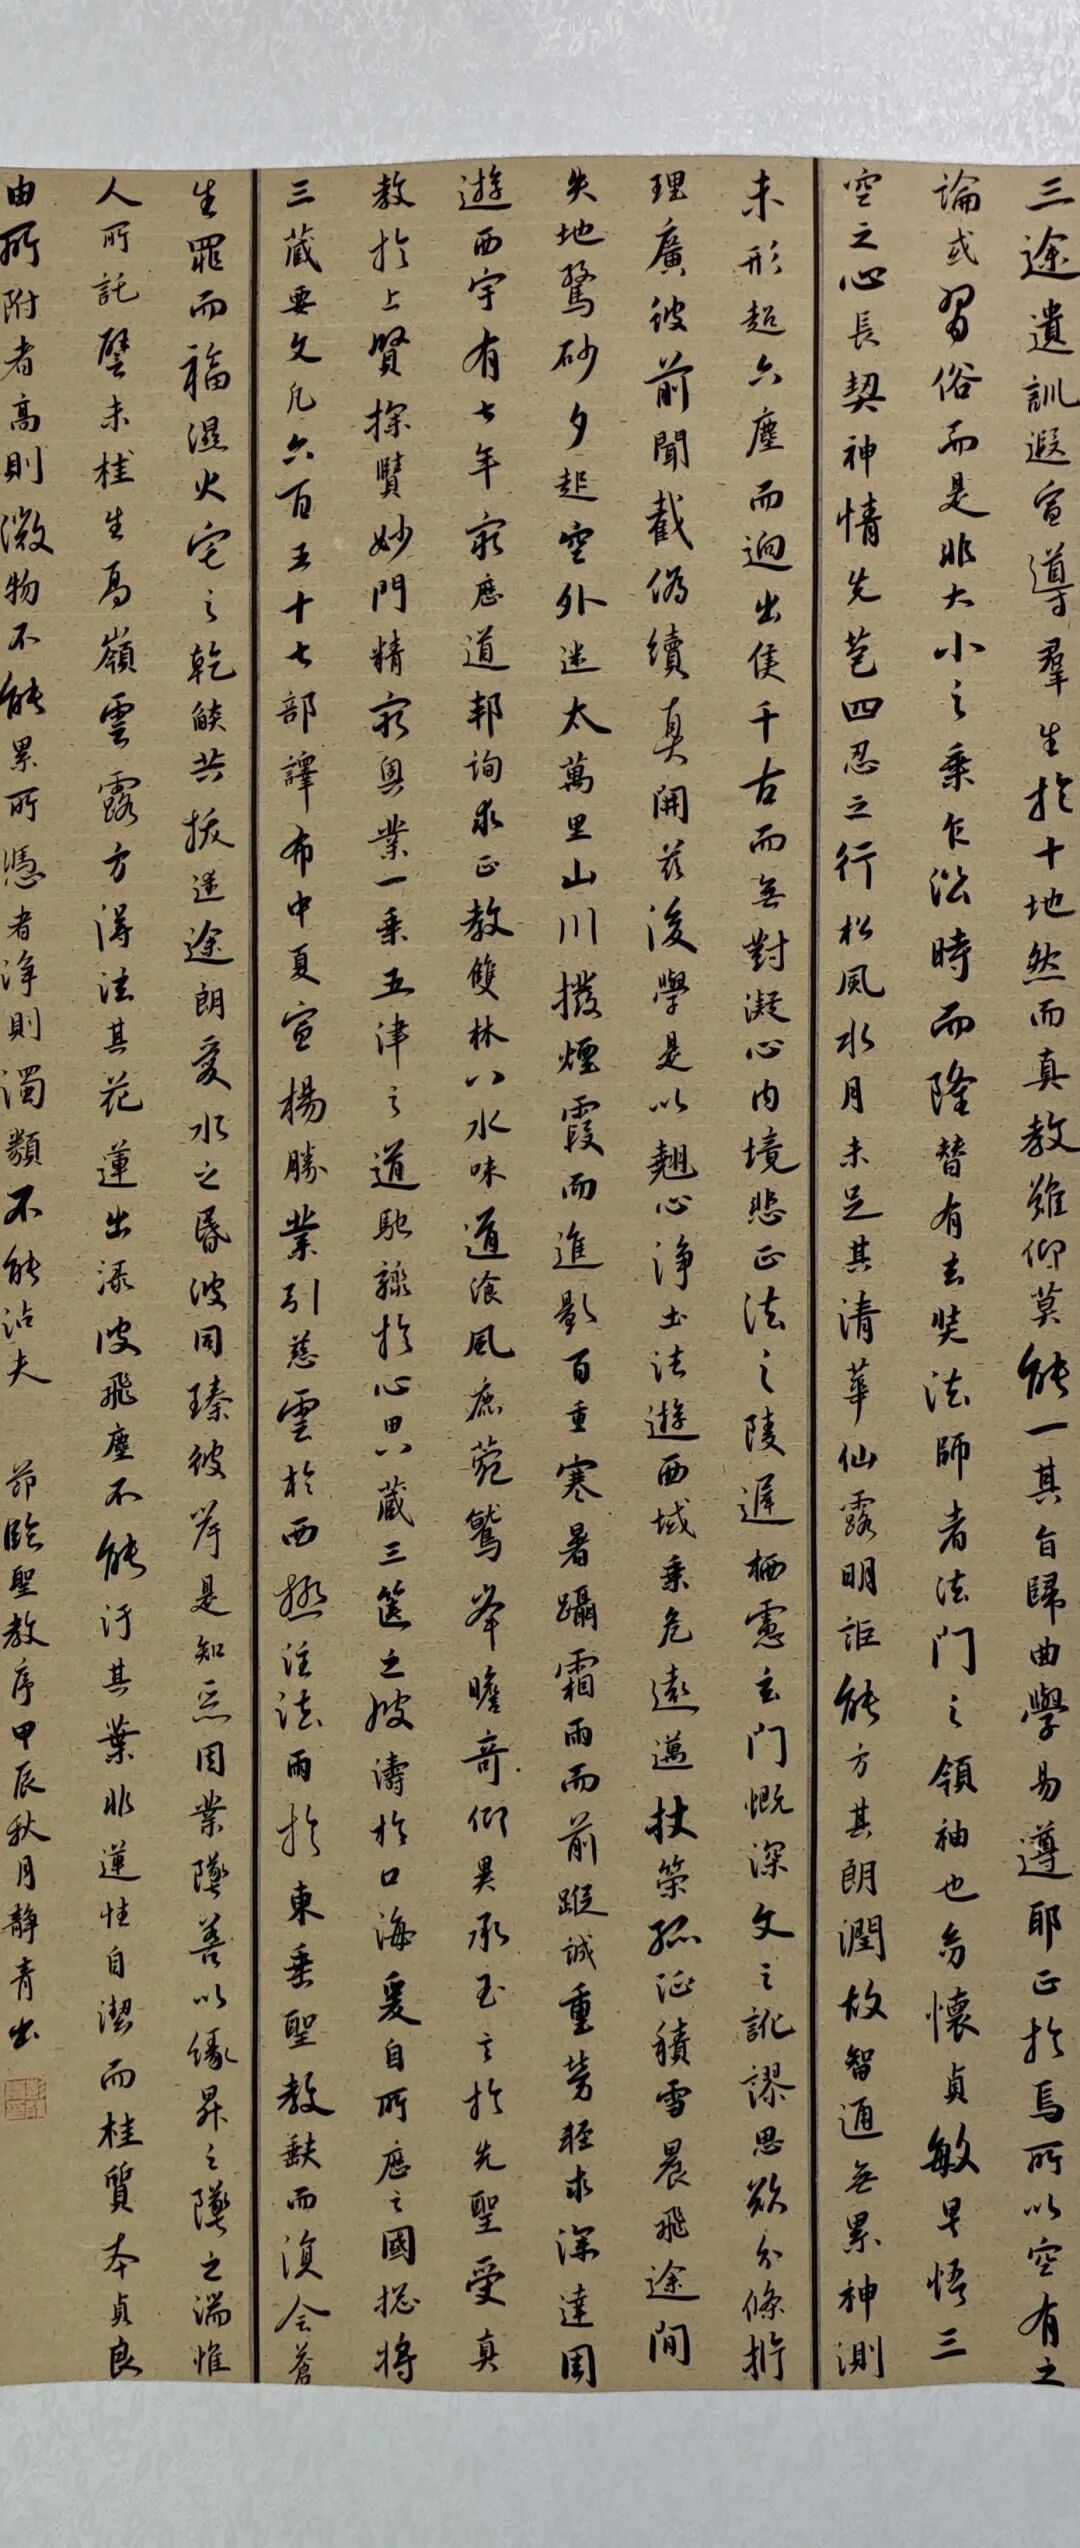 三途遺訓遐宣導羣生於十地然而真教難仰莫能一其旨歸曲學易遵耶正於焉所以空有之
論或習俗而是非大小之乘乍沿時而隆替有玄奘法師者法門之領袖也幼懷貞敏早悟三
空之心長契神情先苞四忍之行松風水月未足其清華仙露明詎能方其朗潤故智通無累神測
未形超六塵而迥出隻千古而無對凝心內境悲正法之陵遲栖慮玄門慨深文之訛謬思欲分條析
理廣彼前聞截偽續真開茲後學是以翹心淨土法遊西域乘危遠邁杖策孤征積雪晨飛途間
失地驚砂夕起空外迷太萬里山川撥煙霞而進影百重寒暑躡霜雨而前蹤誠重勞輕求深達周
遊西宇有七年窮歷道邦詢求正教雙林八水味道飡風鹿菀鷲峯瞻奇仰異承至言於先聖受真
教於上賢探賾妙門精窮奧業一乘五津之道馳驟於心田八藏三篋之波濤於口海爰自所歷之國總將
三藏要文凡六百五十七部譯布中夏宣楊勝業引慈雲於西極注法雨於東垂聖教缺而復全蒼
生罪而福濕火宅之乾燄共拔迷途朗愛水之昏波同臻彼岸是知惡因業墜善以緣昇之墜之端惟
人所託譬夫桂生高嶺雲露方得泫其花蓮出淥波飛塵不能污其葉非蓮性自潔而桂質本貞良
由所附者高則微物不能累所憑者淨則濁類不能沾夫 節臨聖教序甲辰秋月靜青書